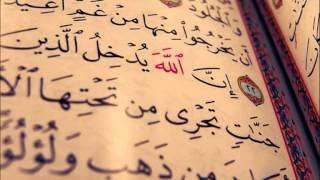 أَن يَخْرُجُوا۟ مِنْهَا مِنْ غَمٍّ أُعِيدُ
٢٢ إِنَّ ٱللَّهَ يُدْخِلُ ٱلَّذِينَ
جَنَّٰتٍ تَجْرِى مِن تَحْتِهَا ٱلْأَ
مِن ذَهَبٍ وَلُؤْلُؤًا